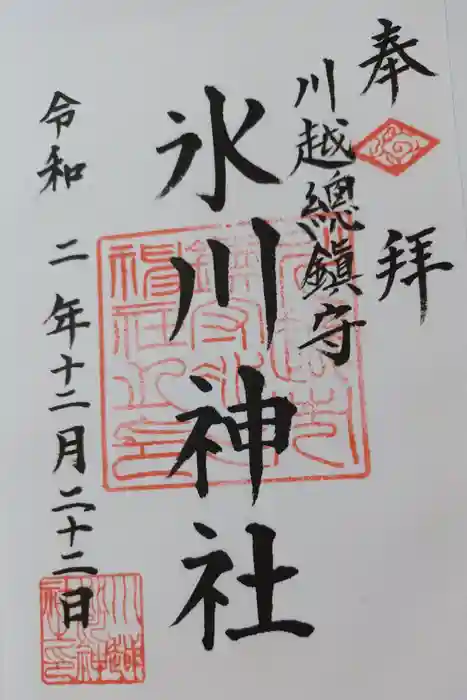 奉拝
川越總鎮守
氷川神社
令和二年十二月二十二日